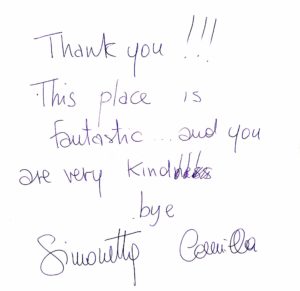 Thank you !!!
This place is
fantastic... and you
are very kind!!!
bye
Simonetta Camilla